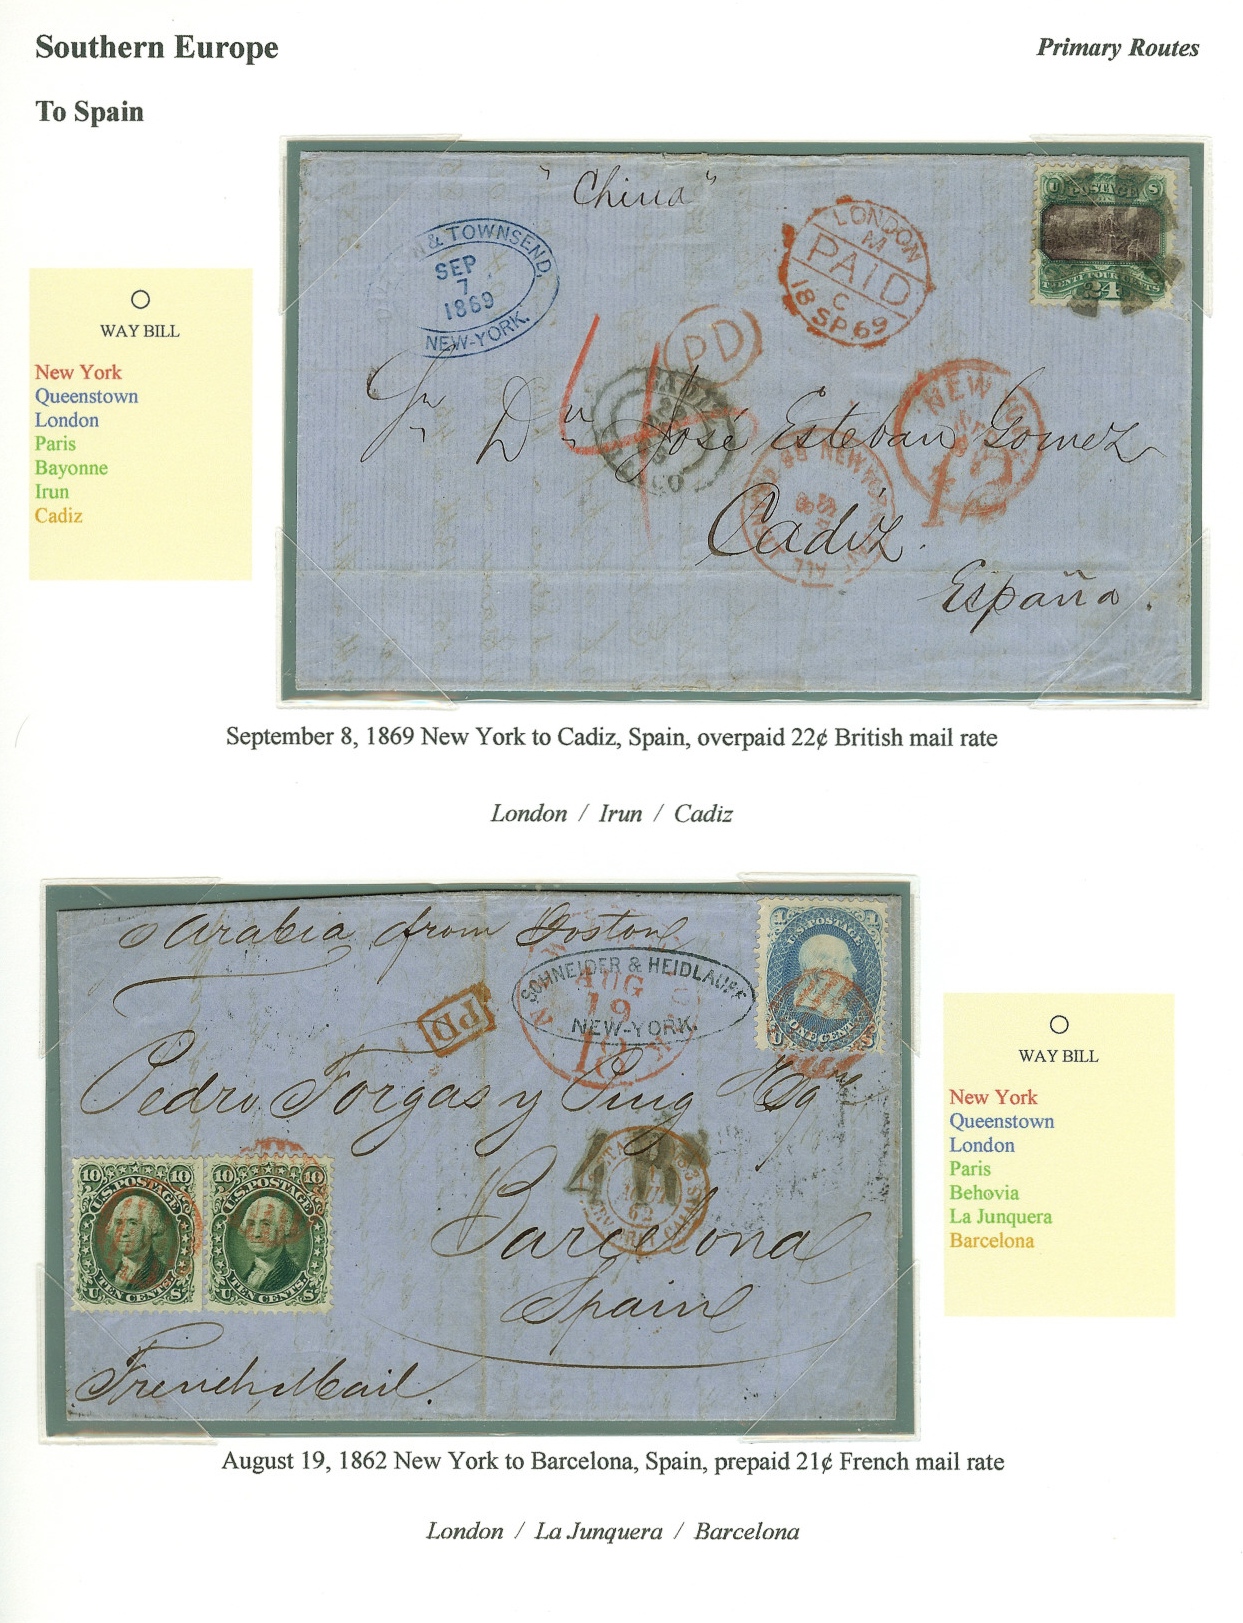 Southern Europe
Primary Routes
To Spain
WAY BILL
New York
Queenstown
London
Paris
Bayonne
Irun
Cadiz
"China"
& TOWNSEND,
SEP
7
1869
NEW-YORK.
LONDON
M
PAID
C
18 SP 69
PD
U POSTAGE S
TWENTY FOUR CENTS
24
NEW YORK
12
CADIZ
NEW YORK
ALL
4
Sr Dn José Esteban Gomez
Cadiz.
España.
September 8, 1869 New York to Cadiz, Spain, overpaid 22¢ British mail rate
London / Irun / Cadiz
Arabia from Boston
SCHNEIDER & HEIDLAUFF
NEW-YORK.
AUG
19
18
PD
1 1
U.S. POSTAGE
ONE CENT
U S
Pedro Forgas y Puig
4 R
62
Barcelona
Spain
10 10
U.S. POSTAGE
TEN CENTS.
U S
10 10
U.S. POSTAGE
TEN CENTS.
U S
French Mail.
WAY BILL
New York
Queenstown
London
Paris
Behovia
La Junquera
Barcelona
August 19, 1862 New York to Barcelona, Spain, prepaid 21¢ French mail rate
London / La Junquera / Barcelona